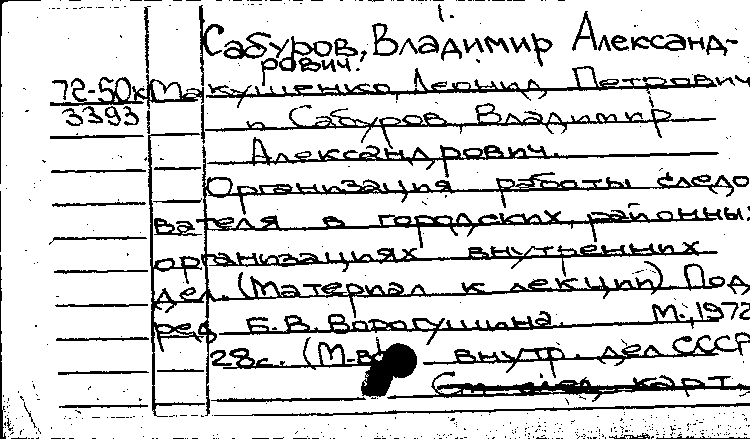 Сабуров, Владимир Александ-
рович.
72-50к Макушенко, Леонид Петрович
3393 и Сабуров, Владимир
Александрович.
Организация работы следо
вателя в городских, районных
организациях внутренних
дел. (Материал к лекции) Под
ред. Б.В. Ворогушина. М., 1972
28с. (М-во внутр. дел СССР
См след. карт.